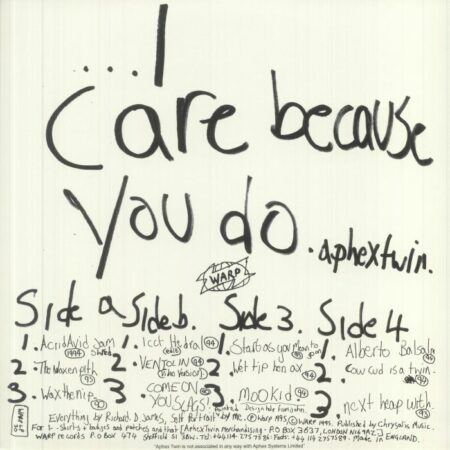 ...I
Care because
you do. aphextwin.
WARP
Side a
1. Acid Avid Jam Shred (1994)
2. The Waxen pith 93
3. Wax the nip 93
Side b.
1. Icct Hedral (edit) 94
2. VENTOLIN 94
(Edit VERSION)
3. COME ON YOU SLAGS!
Side 3.
1. Start as you Mean to go on
2. Wet tip hen ax 94
3. Mookid 94
Side 4
1. Alberto Balsalm 94
2. Cow cud is a twin. 94
3. next heap with 93
Everything by Richard. D. James, Self Portrait by me. © Warp 1995, ℗ Warp 1995. Published by Chrysalis Music.
For T-Shirts + badges and patches and that [Aphex Twin Merchandising - P.O BOX 3837, LONDON N16 9AZ.]
WARP records P.O Box 474 Sheffield S1 Made in ENGLAND.
"Aphex Twin is not associated in any way with Aphex Systems Limited"